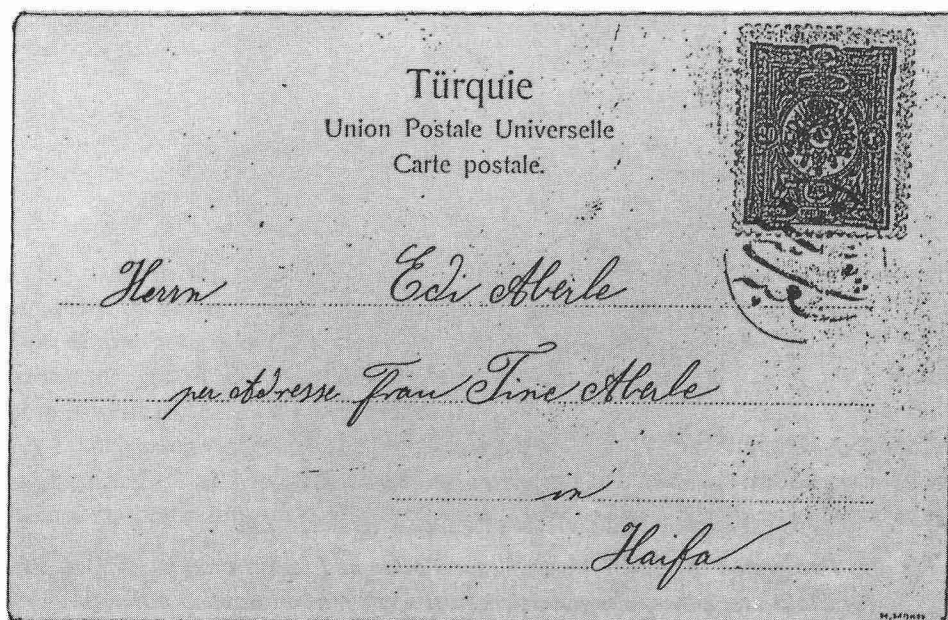 Türquie
Union Postale Universelle
Carte postale.
20
Herrn Edi Aberle
per Adresse Frau Tine Aberle
in
Haifa